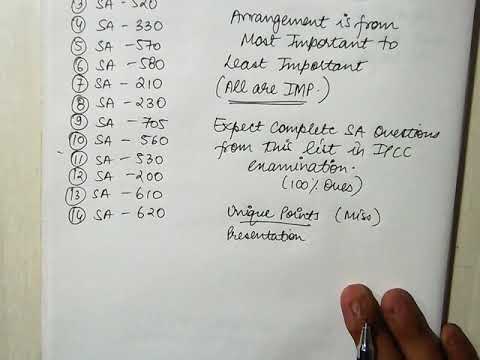 ③ SA - 520
④ SA - 330
⑤ SA - 570
⑥ SA - 580
⑦ SA - 210
⑧ SA - 230
⑨ SA - 705
⑩ SA - 560
⑪ SA - 530
⑫ SA - 200
⑬ SA - 610
⑭ SA - 620
Arrangement is from
Most Important to
Least Important
(All are IMP.)
Expect Complete SA Questions
from this list in IPCC
examination.
(100% Ques)
Unique Points (Miss)
Presentation